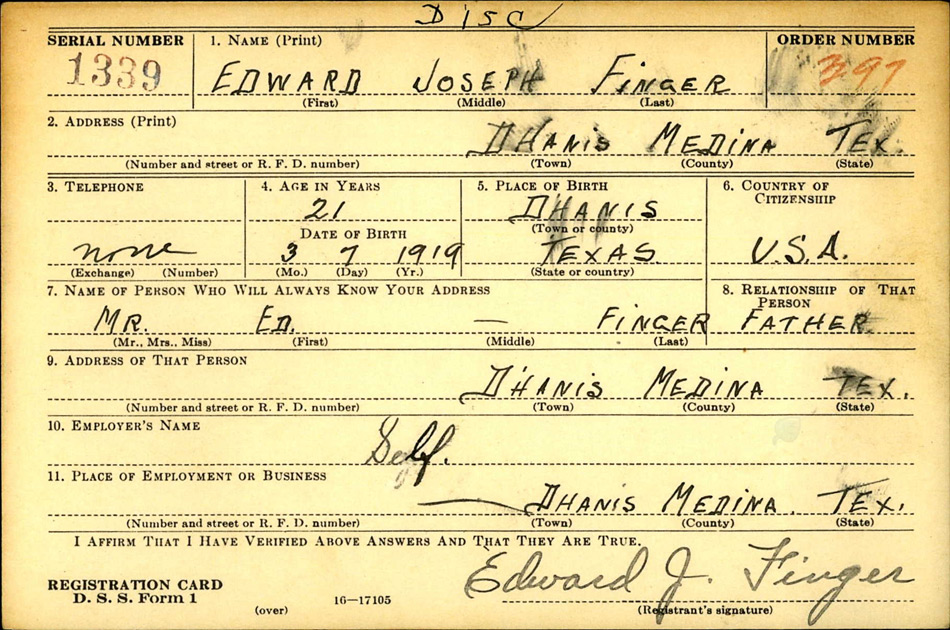 DISC
SERIAL NUMBER 1. NAME (Print) ORDER NUMBER
1339 EDWARD JOSEPH FINGER 397
(First) (Middle) (Last)
2. ADDRESS (Print)
DHANIS MEDINA TEX.
(Number and street or R. F. D. number) (Town) (County) (State)
3. TELEPHONE 4. AGE IN YEARS 5. PLACE OF BIRTH 6. COUNTRY OF CITIZENSHIP
21 DHANIS
DATE OF BIRTH (Town or county)
none 3 7 1919 TEXAS U.S.A.
(Exchange) (Number) (Mo.) (Day) (Yr.) (State or country)
7. NAME OF PERSON WHO WILL ALWAYS KNOW YOUR ADDRESS 8. RELATIONSHIP OF THAT PERSON
MR. ED. — FINGER FATHER
(Mr., Mrs., Miss) (First) (Middle) (Last)
9. ADDRESS OF THAT PERSON
D'HANIS MEDINA TEX.
(Number and street or R. F. D. number) (Town) (County) (State)
10. EMPLOYER'S NAME
Self.
11. PLACE OF EMPLOYMENT OR BUSINESS
— DHANIS MEDINA. TEX.
(Number and street or R. F. D. number) (Town) (County) (State)
I AFFIRM THAT I HAVE VERIFIED ABOVE ANSWERS AND THAT THEY ARE TRUE.
REGISTRATION CARD Edward J. Finger
D. S. S. Form 1 (over) 16—17105 (Registrant's signature)